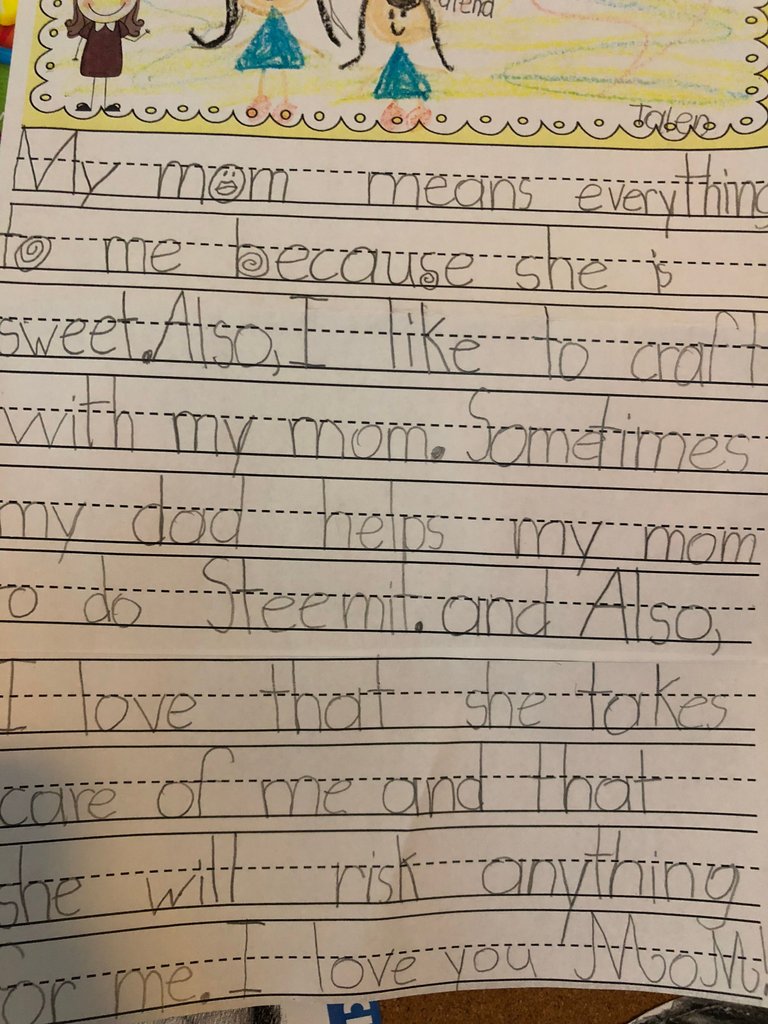 My mom means everything
to me because she is
sweet. Also, I like to craft
with my mom. Sometimes
my dad helps my mom
o do Steemit. and Also,
I love that she takes
care of me and that
she will risk anything
for me. I love you MoM!